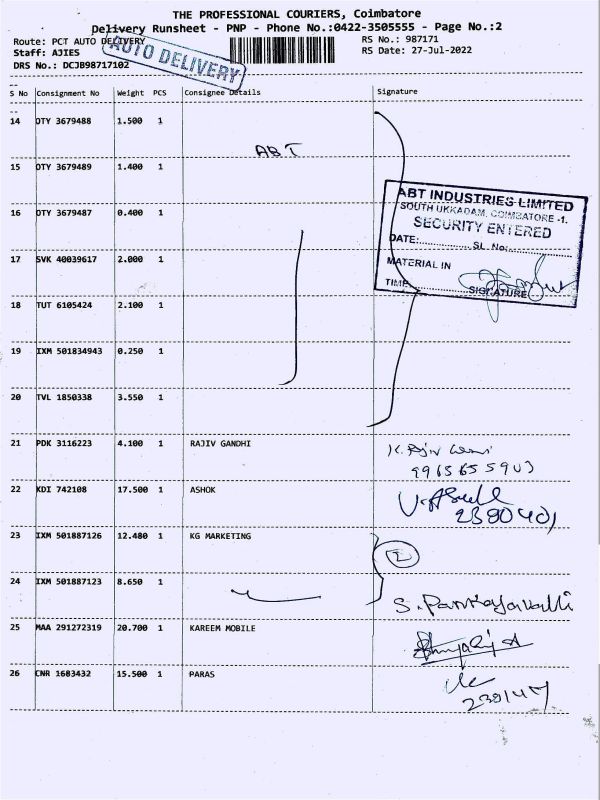 THE PROFESSIONAL COURIERS, Coimbatore
Delivery Runsheet - PNP - Phone No.:0422-3505555 - Page No.:2
Route: PCT AUTO DELIVERY
RS No.: 987171
Staff: AJIES
RS Date: 27-Jul-2022
DRS No.: DCJB98717102
AUTO DELIVERY
S No Consignment No Weight PCS Consignee Details Signature
14 OTY 3679488 1.500 1
ABT
15 OTY 3679489 1.400 1
16 OTY 3679487 0.400 1
17 SVK 40039617 2.000 1
18 TUT 6105424 2.100 1
19 IXM 501834943 0.250 1
20 TVL 1850338 3.550 1
ABT INDUSTRIES LIMITED
SOUTH UKKADAM, COIMBATORE -1.
SECURITY ENTERED
DATE:.............. SL. No:..............
MATERIAL IN
TIME..............SIGNATURE
21 PDK 3116223 4.100 1 RAJIV GANDHI
9965655903
22 KDI 742108 17.500 1 ASHOK
23 IXM 501887126 12.480 1 KG MARKETING
2
24 IXM 501887123 8.650 1
S. Pankajavalli
25 MAA 291272319 20.700 1 KAREEM MOBILE
26 CNR 1603432 15.500 1 PARAS